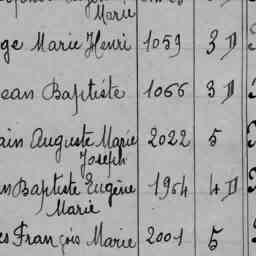 Marie
ge Marie Henri 1059 3 D
ean Baptiste 1066 3 D
ain Auguste Marie 2022 5
Joseph
n Baptiste Eugène 1964 4 D
Marie
es François Marie 2001 5